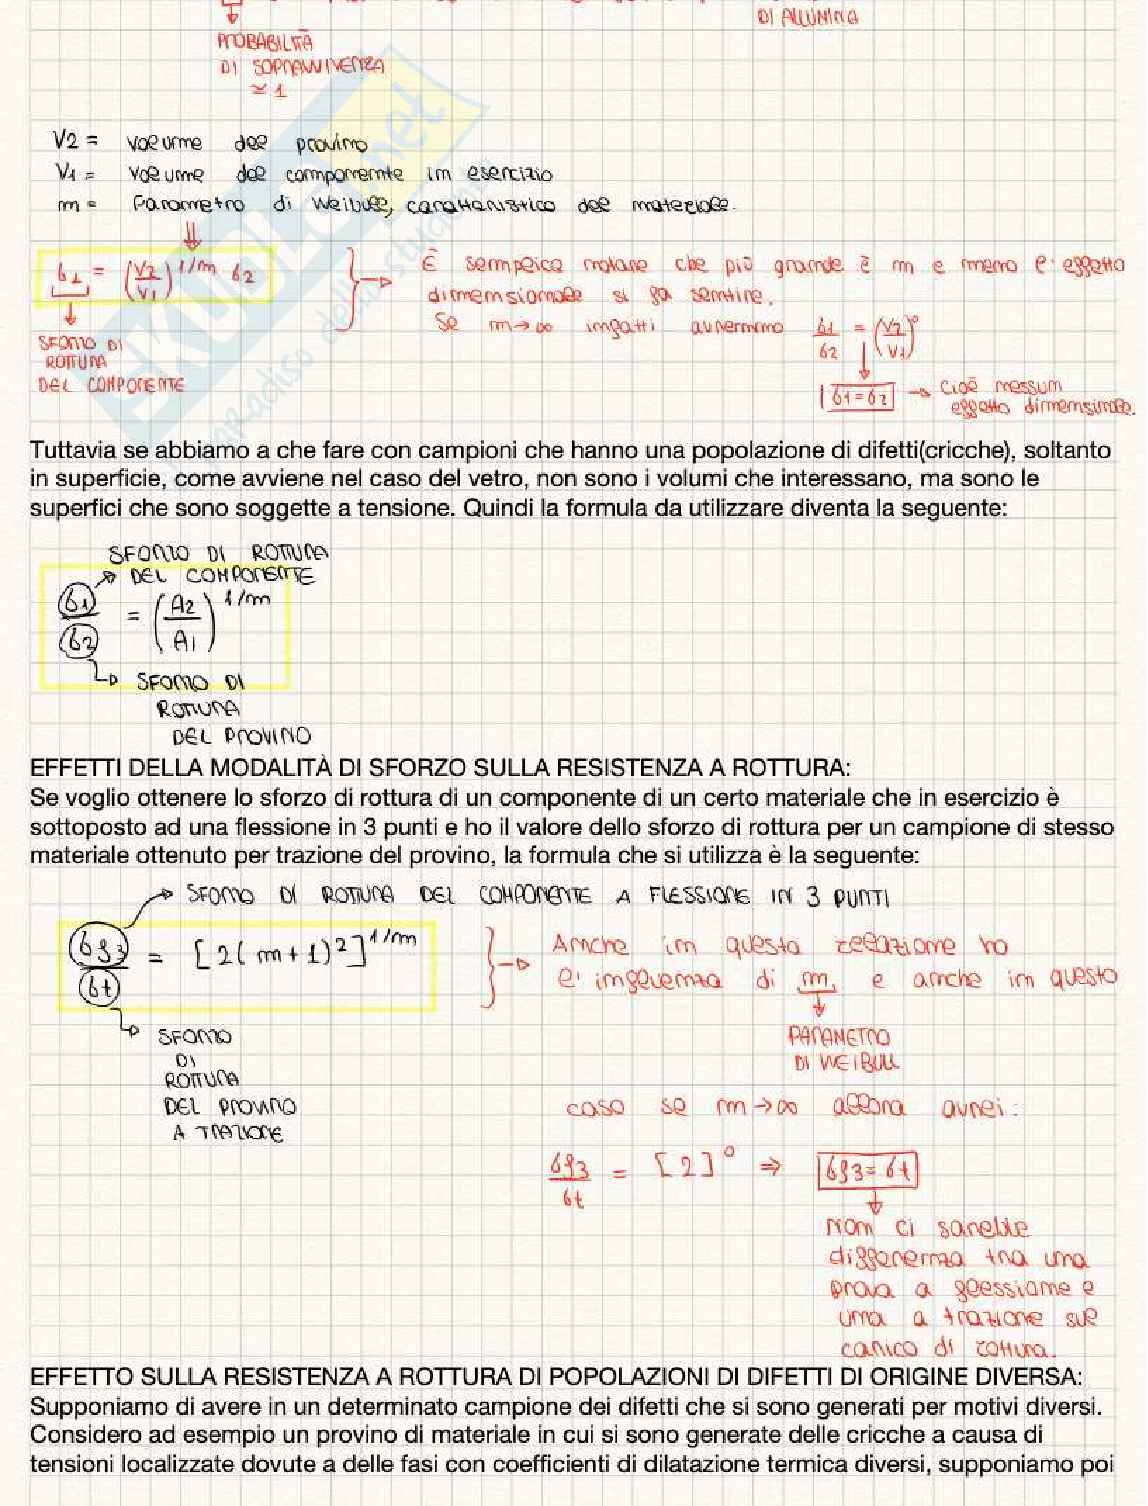 DI ALLUMINA
PROBABILITÀ
DI SOPRAVVIVENZA
≃ 1
V2 = volume del provino
V1 = volume del componente in esercizio
m = Parametro di Weibull, caratteristico del materiale.
σ1 = (V2/V1)^1/m σ2
È semplice notare che più grande è m e meno l'effetto
dimensionale si fa sentire.
Se m→∞ infatti avremmo σ1/σ2 = (V2/V1)^0
SFORZO DI
ROTTURA
DEL COMPONENTE
σ1=σ2 → cioè nessun
effetto dimensionale.
Tuttavia se abbiamo a che fare con campioni che hanno una popolazione di difetti(cricche), soltanto
in superficie, come avviene nel caso del vetro, non sono i volumi che interessano, ma sono le
superfici che sono soggette a tensione. Quindi la formula da utilizzare diventa la seguente:
SFORZO DI ROTTURA
DEL COMPONENTE
σ1/σ2 = (A2/A1)^1/m
SFORZO DI
ROTTURA
DEL PROVINO
EFFETTI DELLA MODALITÀ DI SFORZO SULLA RESISTENZA A ROTTURA:
Se voglio ottenere lo sforzo di rottura di un componente di un certo materiale che in esercizio è
sottoposto ad una flessione in 3 punti e ho il valore dello sforzo di rottura per un campione di stesso
materiale ottenuto per trazione del provino, la formula che si utilizza è la seguente:
SFORZO DI ROTTURA DEL COMPONENTE A FLESSIONE IN 3 PUNTI
σf3/σt = [2(m+1)^2]^1/m
Anche in questa relazione ho
l'influenza di m, e anche in questo
PARAMETRO
DI WEIBULL
SFORZO
DI
ROTTURA
DEL PROVINO
A TRAZIONE
caso se m→∞ allora avrei:
σf3/σt = [2]^0 ⇒ σf3=σt
Non ci sarebbe
differenza tra una
prova a flessione e
una a trazione sul
carico di rottura.
EFFETTO SULLA RESISTENZA A ROTTURA DI POPOLAZIONI DI DIFETTI DI ORIGINE DIVERSA:
Supponiamo di avere in un determinato campione dei difetti che si sono generati per motivi diversi.
Considero ad esempio un provino di materiale in cui si sono generate delle cricche a causa di
tensioni localizzate dovute a delle fasi con coefficienti di dilatazione termica diversi, supponiamo poi
SKUOLA.net
paradiso dello studente